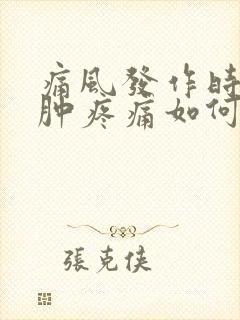 痛風發作時
肿疼痛如何
張克俠